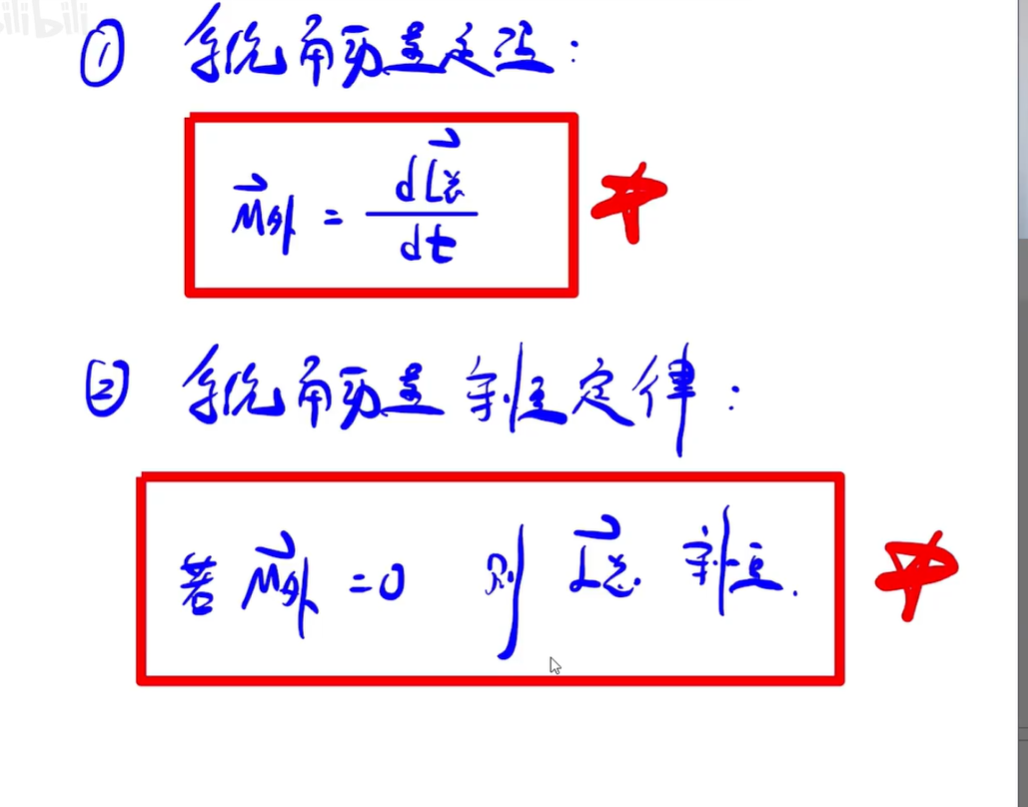 bilibili
① 系统角动量定理:
M⃗外 = dL⃗总/dt
② 系统角动量守恒定律:
若 M⃗外 =0 则 L⃗总 守恒.